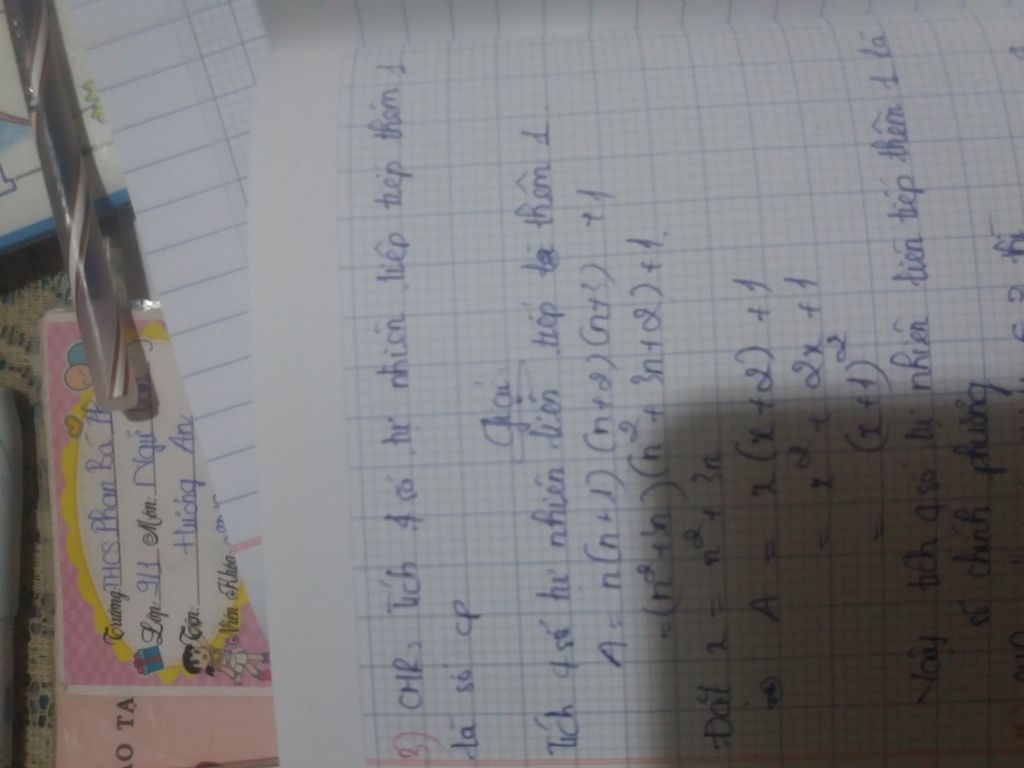 3) CMR, Tích 4 số tự nhiên liên tiếp thêm 1
là số cp
Giải
Tích 4 số tự nhiên liên tiếp thêm 1
A = n(n+1)(n+2)(n+3) +1
=(n²+3n)(n²+3n+2)+1.
Đặt x = n²+3n
⇒ A = x(x+2)+1
= x²+2x+1
= (x+1)²
Vậy tích 4 số tự nhiên liên tiếp thêm 1 là
số chính phương
Trường: THCS Phan Bá
Lớp: 9/1 Môn:
Tên: Hướng An
Niên Khóa: